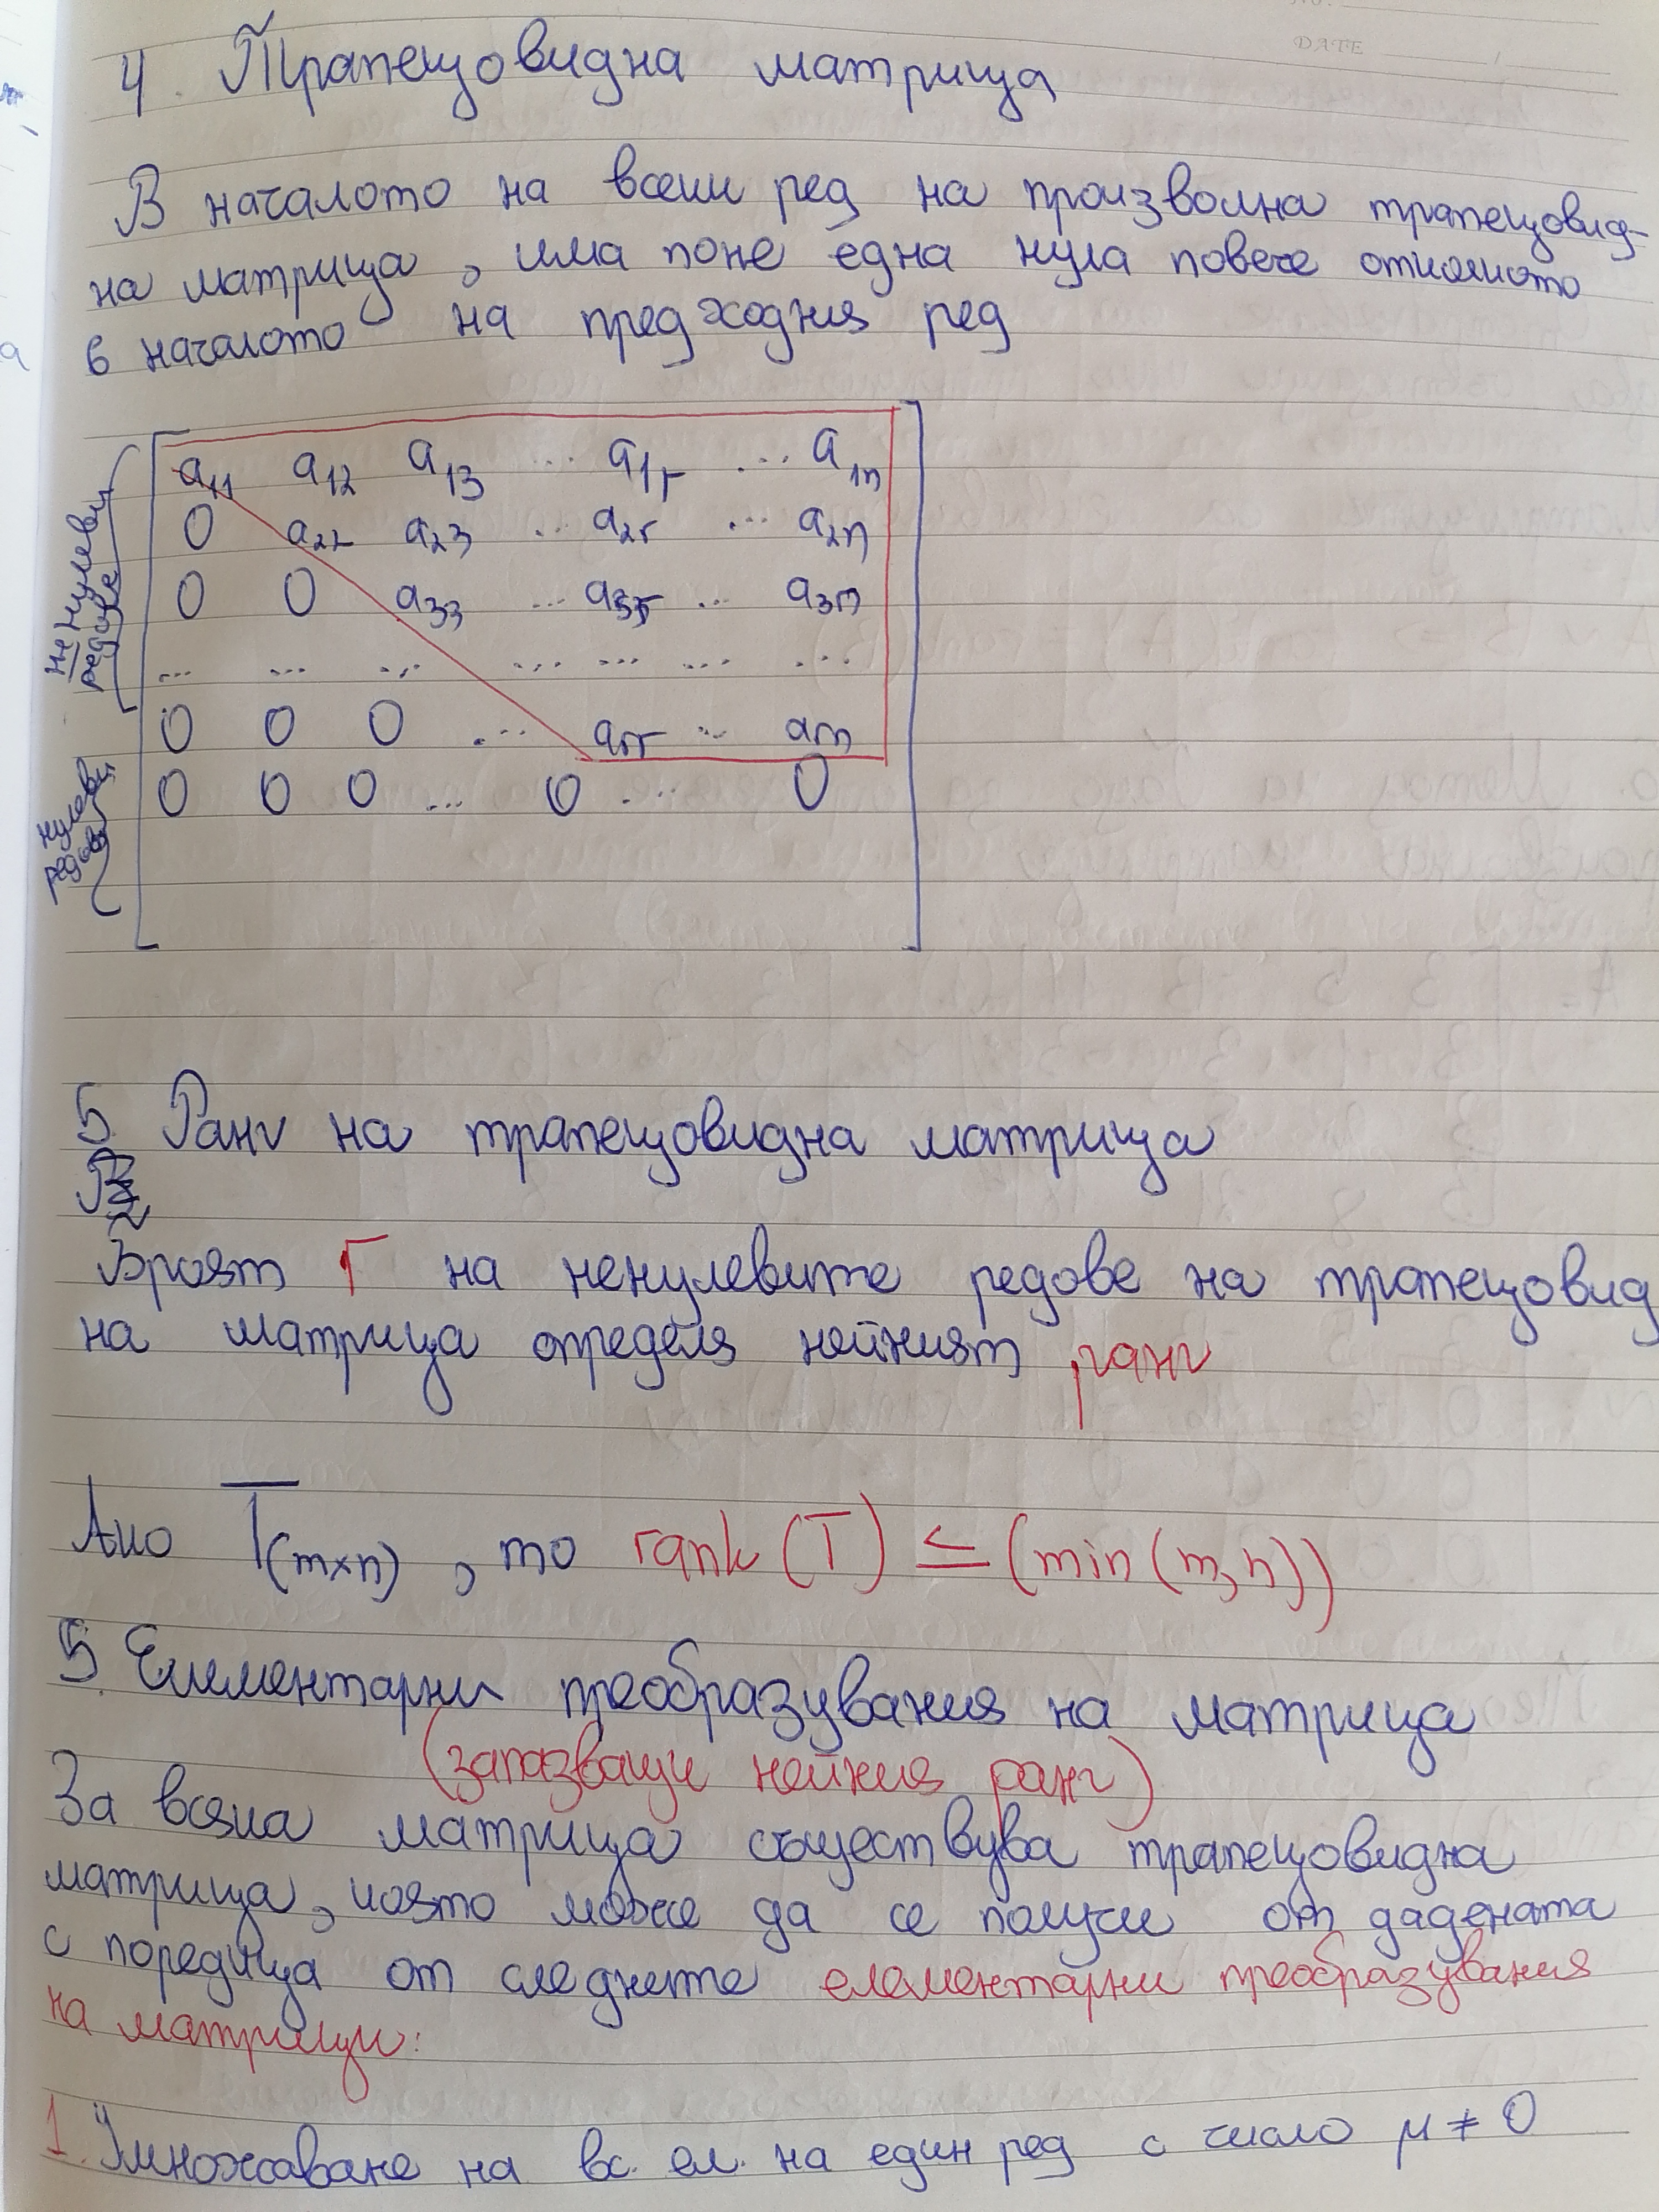 NO.
DATE
4. Трапецовидна матрица
В началото на всеки ред на произволна трапецовид-
на матрица, има поне една нула повече отколкото
в началото на предходния ред
a11 a12 a13 ... a1r ... a1n
0 a22 a23 ... a2r ... a2n
0 0 a33 ... a3r ... a3n
... ... ... ... ... ... ...
0 0 0 ... arr ... arn
0 0 0 ... 0 ... 0
ненулеви
редове
нулеви
редове
5. Ранг на трапецовидна матрица
Броят r на ненулевите редове на трапецовид
на матрица определя нейният ранг
Ако T(m×n), то rank(T) ≤ (min(m,n))
5. Елементарни преобразувания на матрица
(запазващи нейния ранг)
За всяка матрица съществува трапецовидна
матрица, която може да се получи от дадената
с поредица от следните елементарни преобразувания
на матрици:
1. Умножаване на вс. ел. на един ред с число μ ≠ 0